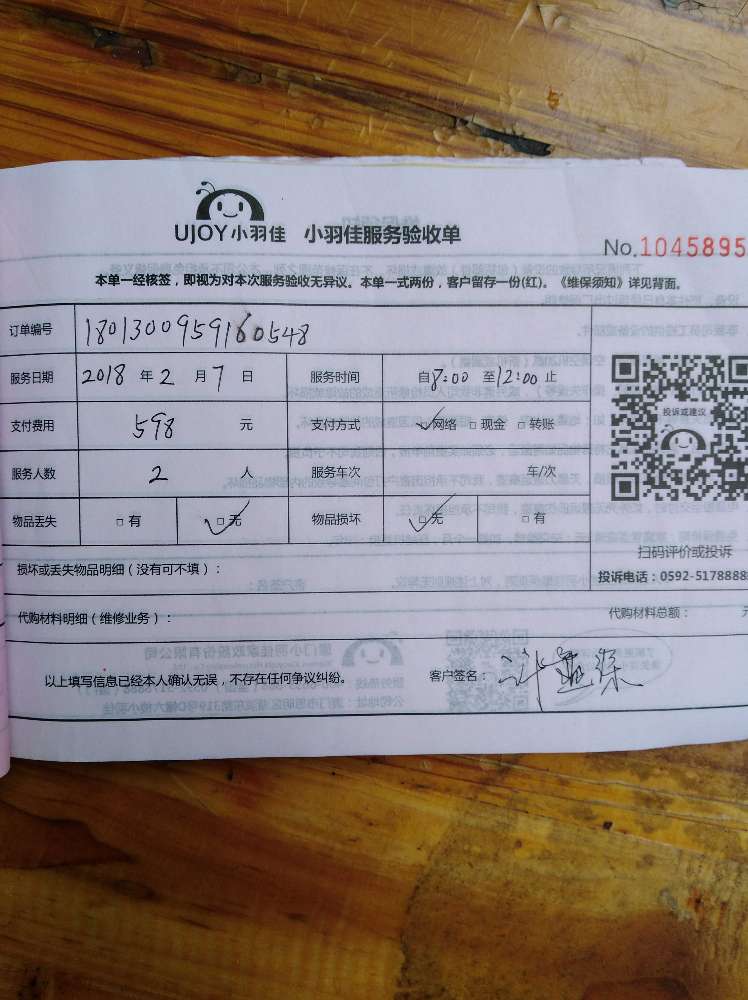 UJOY小羽佳 小羽佳服务验收单
No.1045895
本单一经核签，即视为对本次服务验收无异议。本单一式两份，客户留存一份(红)。《维保须知》详见背面。
订单编号 1801300959160548
服务日期 2018 年 2 月 7 日 服务时间 自8:00 至12:00止
支付费用 598 元 支付方式 ☑网络 □现金 □转账
投诉或建议
服务人数 2 人 服务车次 车/次
物品丢失 □有 ☑无 物品损坏 ☑无 □有
扫码评价或投诉
损坏或丢失物品明细（没有可不填）：
投诉电话：0592-5178888
代购材料明细（维修业务）： 代购材料总额：
以上填写信息已经本人确认无误，不存在任何争议纠纷。 客户签名：